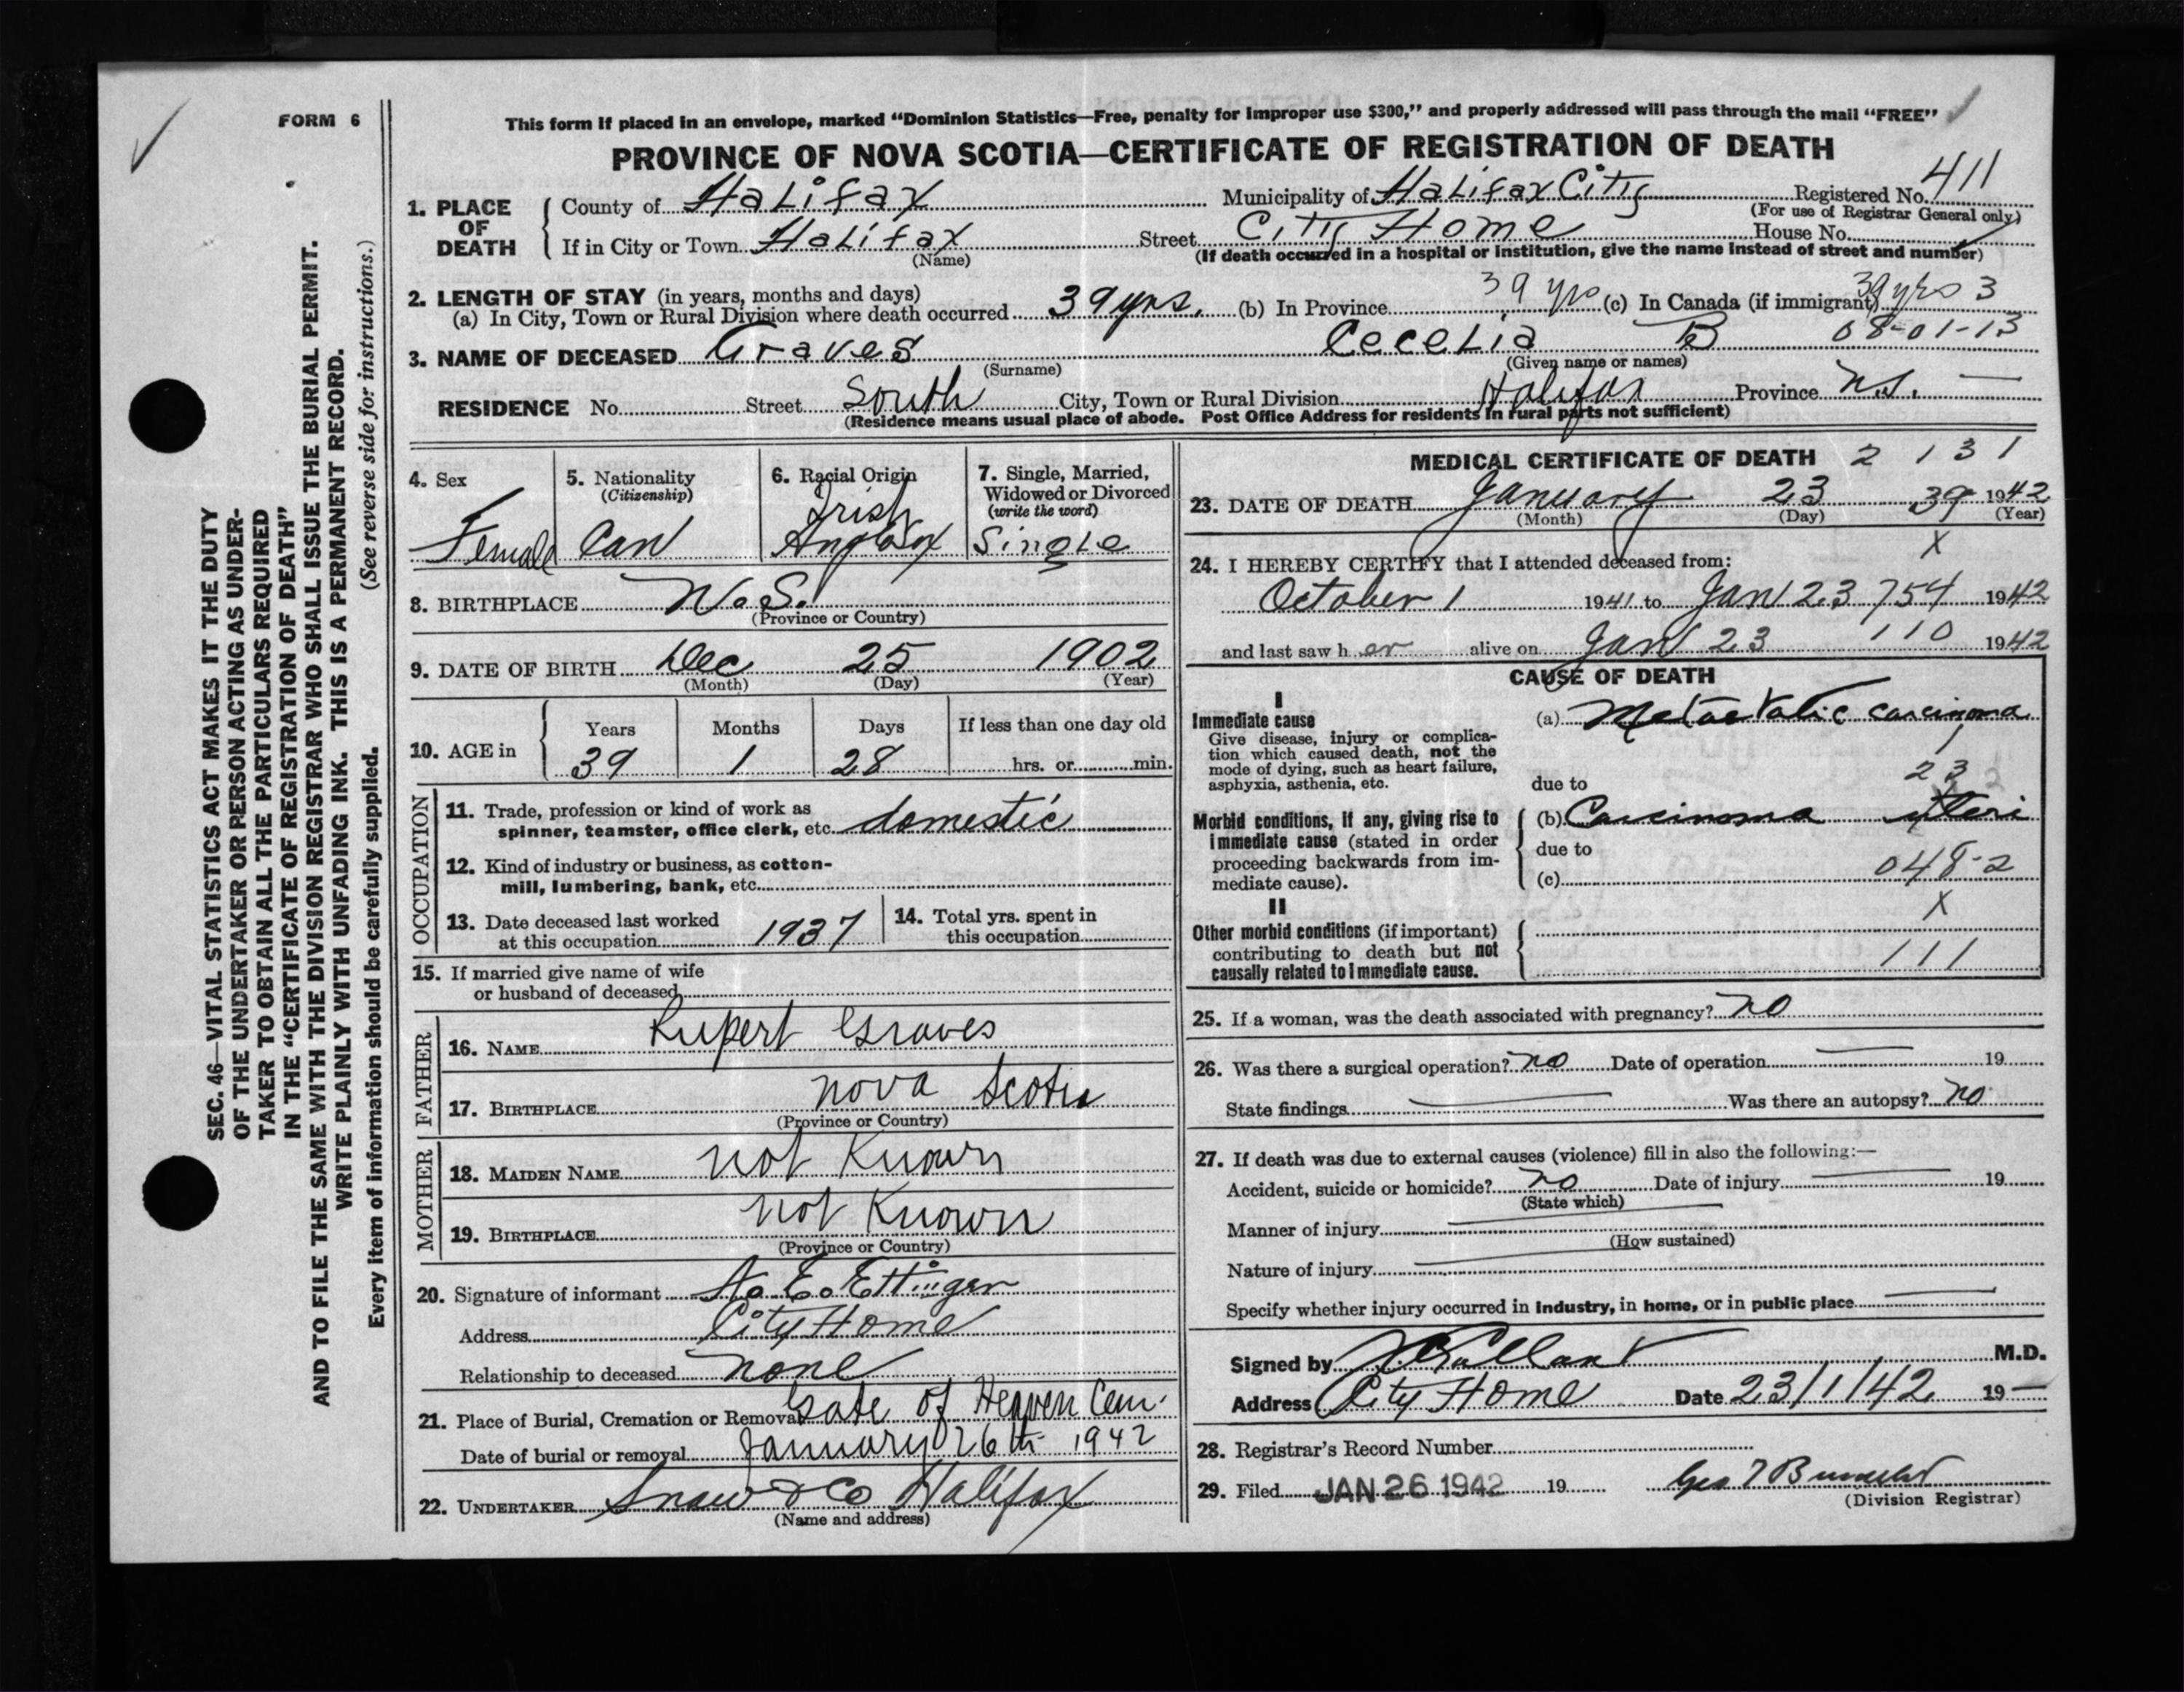 FORM 6
This form if placed in an envelope, marked “Dominion Statistics—Free, penalty for improper use $300,” and properly addressed will pass through the mail “FREE”
PROVINCE OF NOVA SCOTIA—CERTIFICATE OF REGISTRATION OF DEATH
1. PLACE OF DEATH
County of Halifax Municipality of Halifax City Registered No. 411
(For use of Registrar General only)
If in City or Town Halifax Street City Home House No.
(Name) (If death occurred in a hospital or institution, give the name instead of street and number)
2. LENGTH OF STAY (in years, months and days)
(a) In City, Town or Rural Division where death occurred 39 yrs. (b) In Province 39 yrs (c) In Canada (if immigrant) 39 yrs 3
08-01-13
3. NAME OF DECEASED Graves Cecelia B
(Surname) (Given name or names)
RESIDENCE No. Street South City, Town or Rural Division Halifax Province N.S. —
(Residence means usual place of abode. Post Office Address for residents in rural parts not sufficient)
4. Sex
Female
5. Nationality
(Citizenship)
Can
6. Racial Origin
Irish
7. Single, Married,
Widowed or Divorced
(write the word)
Single
8. BIRTHPLACE N.S.
(Province or Country)
9. DATE OF BIRTH Dec 25 1902
(Month) (Day) (Year)
10. AGE in
Years Months Days If less than one day old
39 1 28 hrs. or min.
OCCUPATION
11. Trade, profession or kind of work as
spinner, teamster, office clerk, etc. domestic
12. Kind of industry or business, as cotton-
mill, lumbering, bank, etc.
13. Date deceased last worked
at this occupation 1937
14. Total yrs. spent in
this occupation
15. If married give name of wife
or husband of deceased
FATHER
16. NAME Rupert Graves
17. BIRTHPLACE Nova Scotia
(Province or Country)
MOTHER
18. MAIDEN NAME not Known
19. BIRTHPLACE not Known
(Province or Country)
20. Signature of informant A. E. Ettinger
Address City Home
Relationship to deceased none
21. Place of Burial, Cremation or Removal Gate of Heaven Cem.
Date of burial or removal January 26th 1942
22. UNDERTAKER Snow & Co Halifax
(Name and address)
MEDICAL CERTIFICATE OF DEATH 2 131
23. DATE OF DEATH January 23 39 1942
(Month) (Day) (Year)
X
24. I HEREBY CERTIFY that I attended deceased from:
October 1 1941 to Jan 23 754 1942
and last saw h er alive on Jan 23 110 1942
CAUSE OF DEATH
I
Immediate cause
Give disease, injury or complica-
tion which caused death, not the
mode of dying, such as heart failure,
asphyxia, asthenia, etc.
(a) Metastatic carcinoma
1
23
due to
Morbid conditions, if any, giving rise to
immediate cause (stated in order
proceeding backwards from im-
mediate cause).
(b) Carcinoma uteri
due to
(c) 048-2
X
II
Other morbid conditions (if important)
contributing to death but not
causally related to immediate cause.
111
25. If a woman, was the death associated with pregnancy? no
26. Was there a surgical operation? no Date of operation — 19
State findings — Was there an autopsy? no
27. If death was due to external causes (violence) fill in also the following:—
Accident, suicide or homicide? no Date of injury — 19
(State which)
Manner of injury —
(How sustained)
Nature of injury —
Specify whether injury occurred in industry, in home, or in public place —
Signed by M.D.
Address City Home Date 23/1/42 19 —
28. Registrar's Record Number
29. Filed JAN 26 1942 19
(Division Registrar)
SEC. 46—VITAL STATISTICS ACT MAKES IT THE DUTY
OF THE UNDERTAKER OR PERSON ACTING AS UNDER-
TAKER TO OBTAIN ALL THE PARTICULARS REQUIRED
IN THE “CERTIFICATE OF REGISTRATION OF DEATH”
AND TO FILE THE SAME WITH THE DIVISION REGISTRAR WHO SHALL ISSUE THE BURIAL PERMIT.
WRITE PLAINLY WITH UNFADING INK. THIS IS A PERMANENT RECORD.
Every item of information should be carefully supplied. (See reverse side for instructions.)